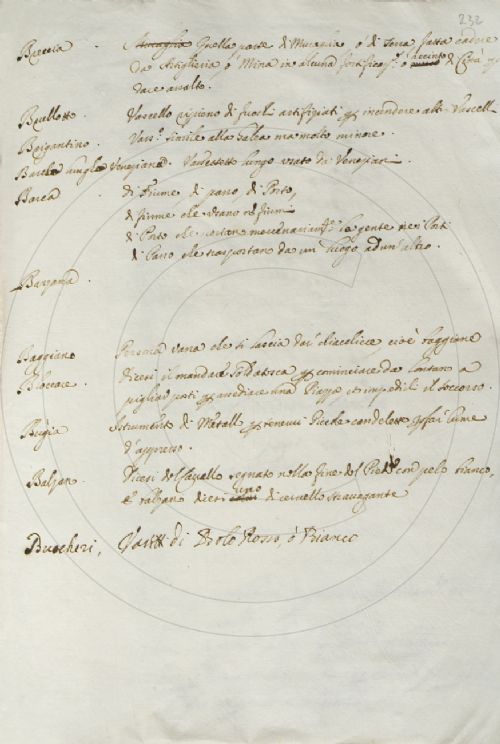 232
Breccia . Quella parte di Muraglia, ó di Terra fatta cadere
da Artigleria ó Mina in alcuna fortificaz. ó recinto di Città p
dare assalto.
Brulotto . Vascello ripieno di fuochi artifiziati p incendere altri Vascelli
Brigantino . Vass.o simile alla Galea ma molto minore.
Barca lunga Veneziana. Vascelletto lungo usato da Veneziani.
Barca . di Fiume, di passo, di Porto,
di fiume che usano ne fiumi
di Porto che portan mercanzie la gente nei Porti
di Passo che trasportano da un luogo ad un altro.
Barzana .
Baggiano Persona vana che si lascia dar chiacchiere, cioè baggiane
Bloccare . Dicesi il mandare Soldatesca p cominciare da lontano a
pigliar posti p assediare una Piazza et impedirli il soccorso.
Bugia Istrumento di Metallo p tenervi piccole candelette p far lume
d'appresso.
Balzan . Dicesi del Cavallo segnato nella fine del Piede con pelo bianco,
e balzano dicesi uno di cervello stravagante
Buccheri, Vasetti di Bolo Rosso, ó Bianco